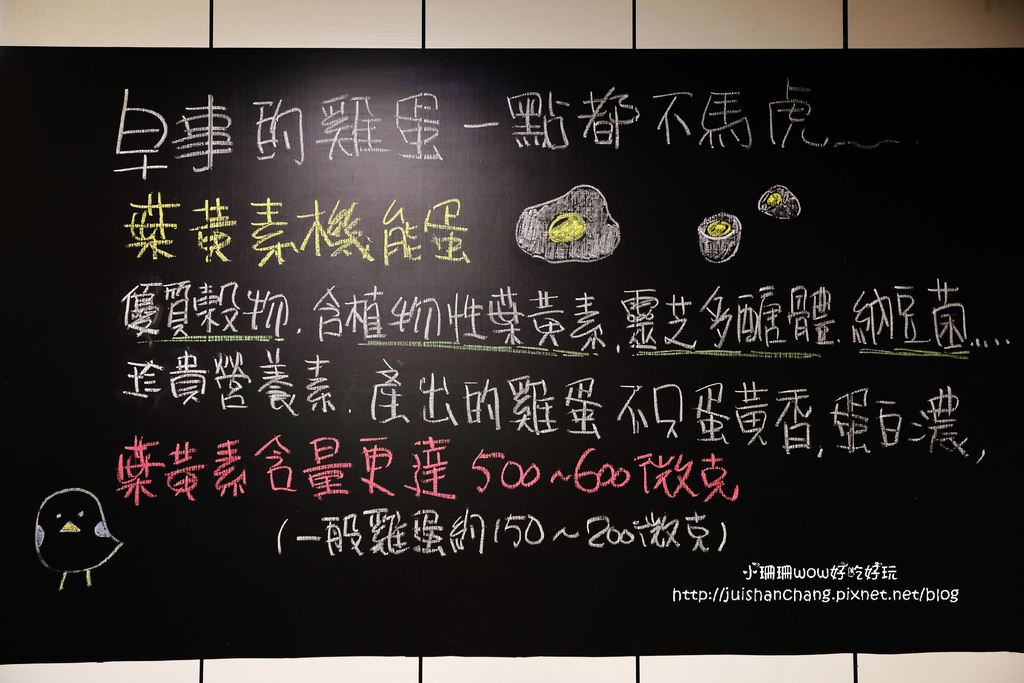 早事的雞蛋一點都不馬虎
葉黃素機能蛋
優質穀物.含植物性葉黃素.靈芝多醣體.納豆菌.....
珍貴營養素.產出的雞蛋不只蛋黃香,蛋白濃,
葉黃素含量更達500~600微克
(一般雞蛋約150~200微克)
小珊珊wow好吃好玩
http://juishanchang.pixnet.net/blog